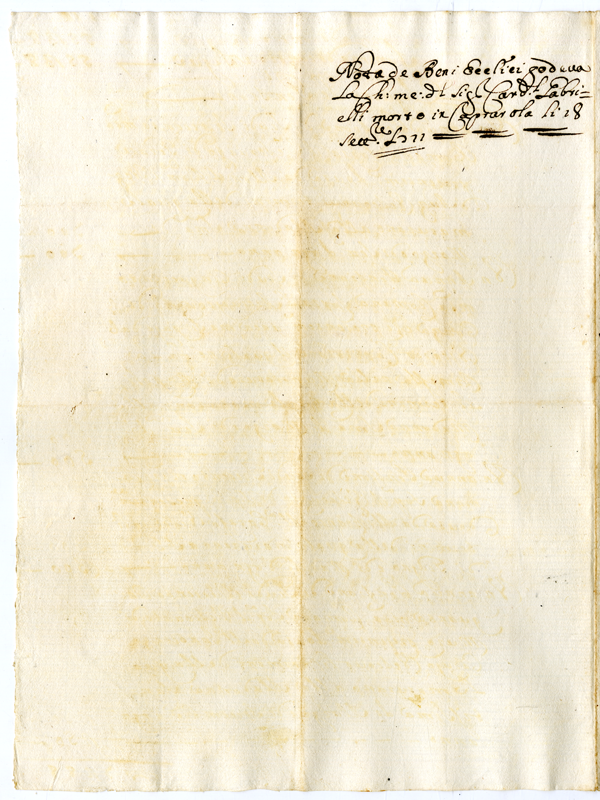 Nota de Beni Eccl:ci godeva
La Ch: me: d'l Sig.r Card.l Gabri=
elli morto in Caprarola li 18
Sett.e 1711